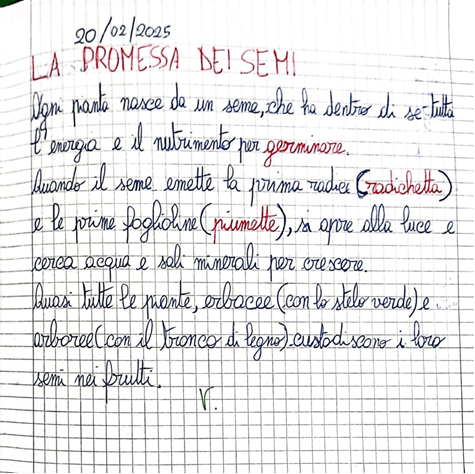 20/02/2025
LA PROMESSA DEI SEMI
Ogni pianta nasce da un seme, che ha dentro di sé tutta
l'energia e il nutrimento per germinare.
Quando il seme emette la prima radice (radichetta)
e le prime foglioline (piumette), si apre alla luce e
cerca acqua e sali minerali per crescere.
Quasi tutte le piante, erbacee (con lo stelo verde) e
arboree (con il tronco di legno) custodiscono i loro
semi nei frutti.
V.